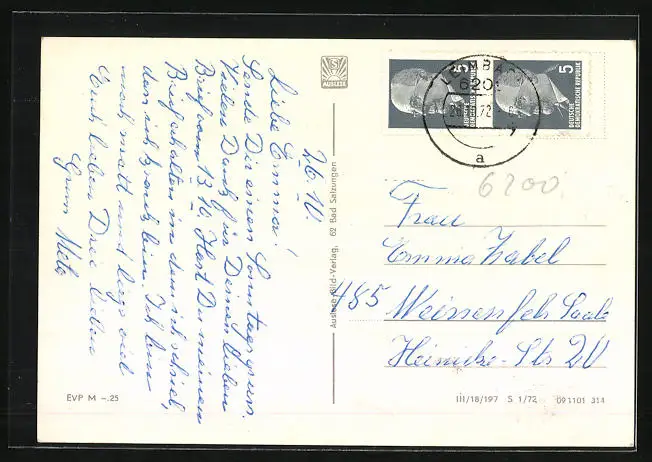 26.10.
Liebe Emma!
Sende Dir einen Sonntagsgruss.
Vielen Dank für Deinen lieben
Brief vom 13.10. Hast Du meinen
Brief erhalten in dem ich schrieb,
das ich krank bin. Ich bin
noch matt und liege viel
Euch lieben Drei liebe
Gruss Meta
EVP M –.25
AUSLESE
Auslese-Bild-Verlag, 62 Bad Salzungen
5
DEUTSCHE
DEMOKRATISCHE REPUBLIK
5
DEUTSCHE
DEMOKRATISCHE REPUBLIK
620
72
a
6200
Frau
Emma Zabel
485 Weissenfels Saale
Heinicke-Str 20
III/18/197 S 1/72 091101 314